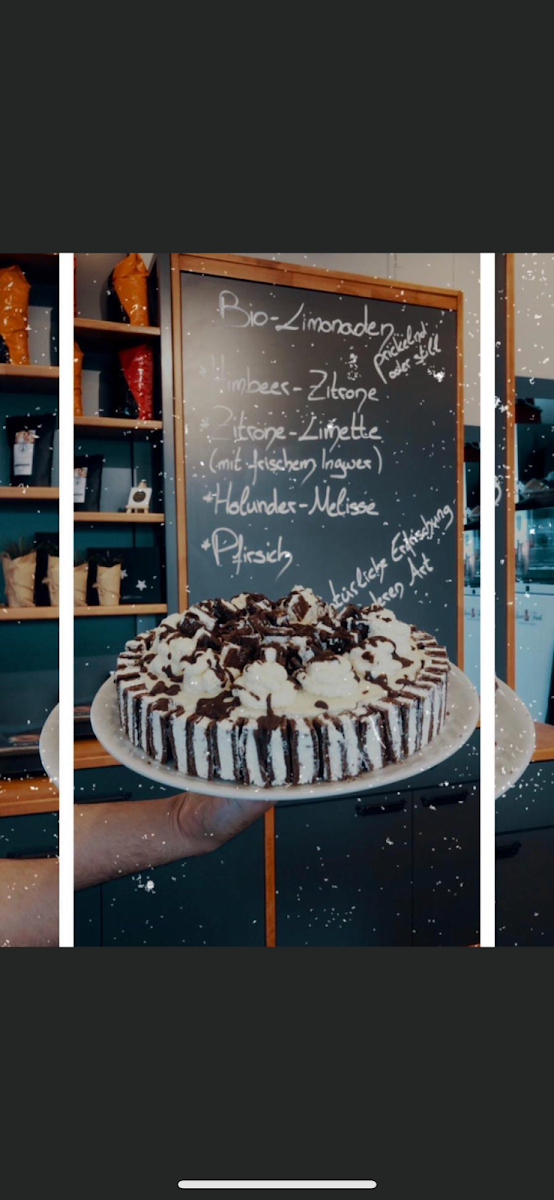 Bio-Limonaden
prickelnd
oder still
*Himbeer-Zitrone
*Zitrone-Limette
(mit frischem Ingwer)
*Holunder-Melisse
*Pfirsich
Erfrischung
Art